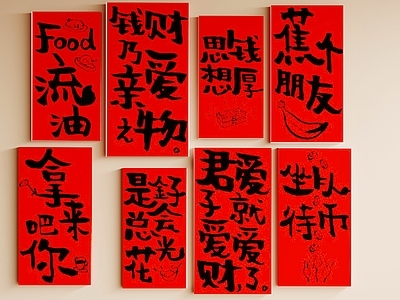 Food
流
油
钱财
乃
亲爱
之物。
思钱
想厚
蕉个
朋友
拿
来
吧
你
是金子
总会
花光
君子爱财,
爱就爱了。
坐以
待币